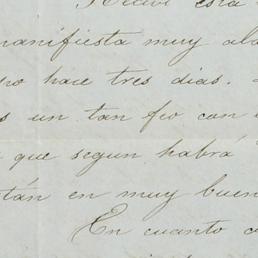 Recibí esta
manifiesta muy ala
hace tres dias.
un tan feo con
que segun habrá
están en muy buen
En cuanto a